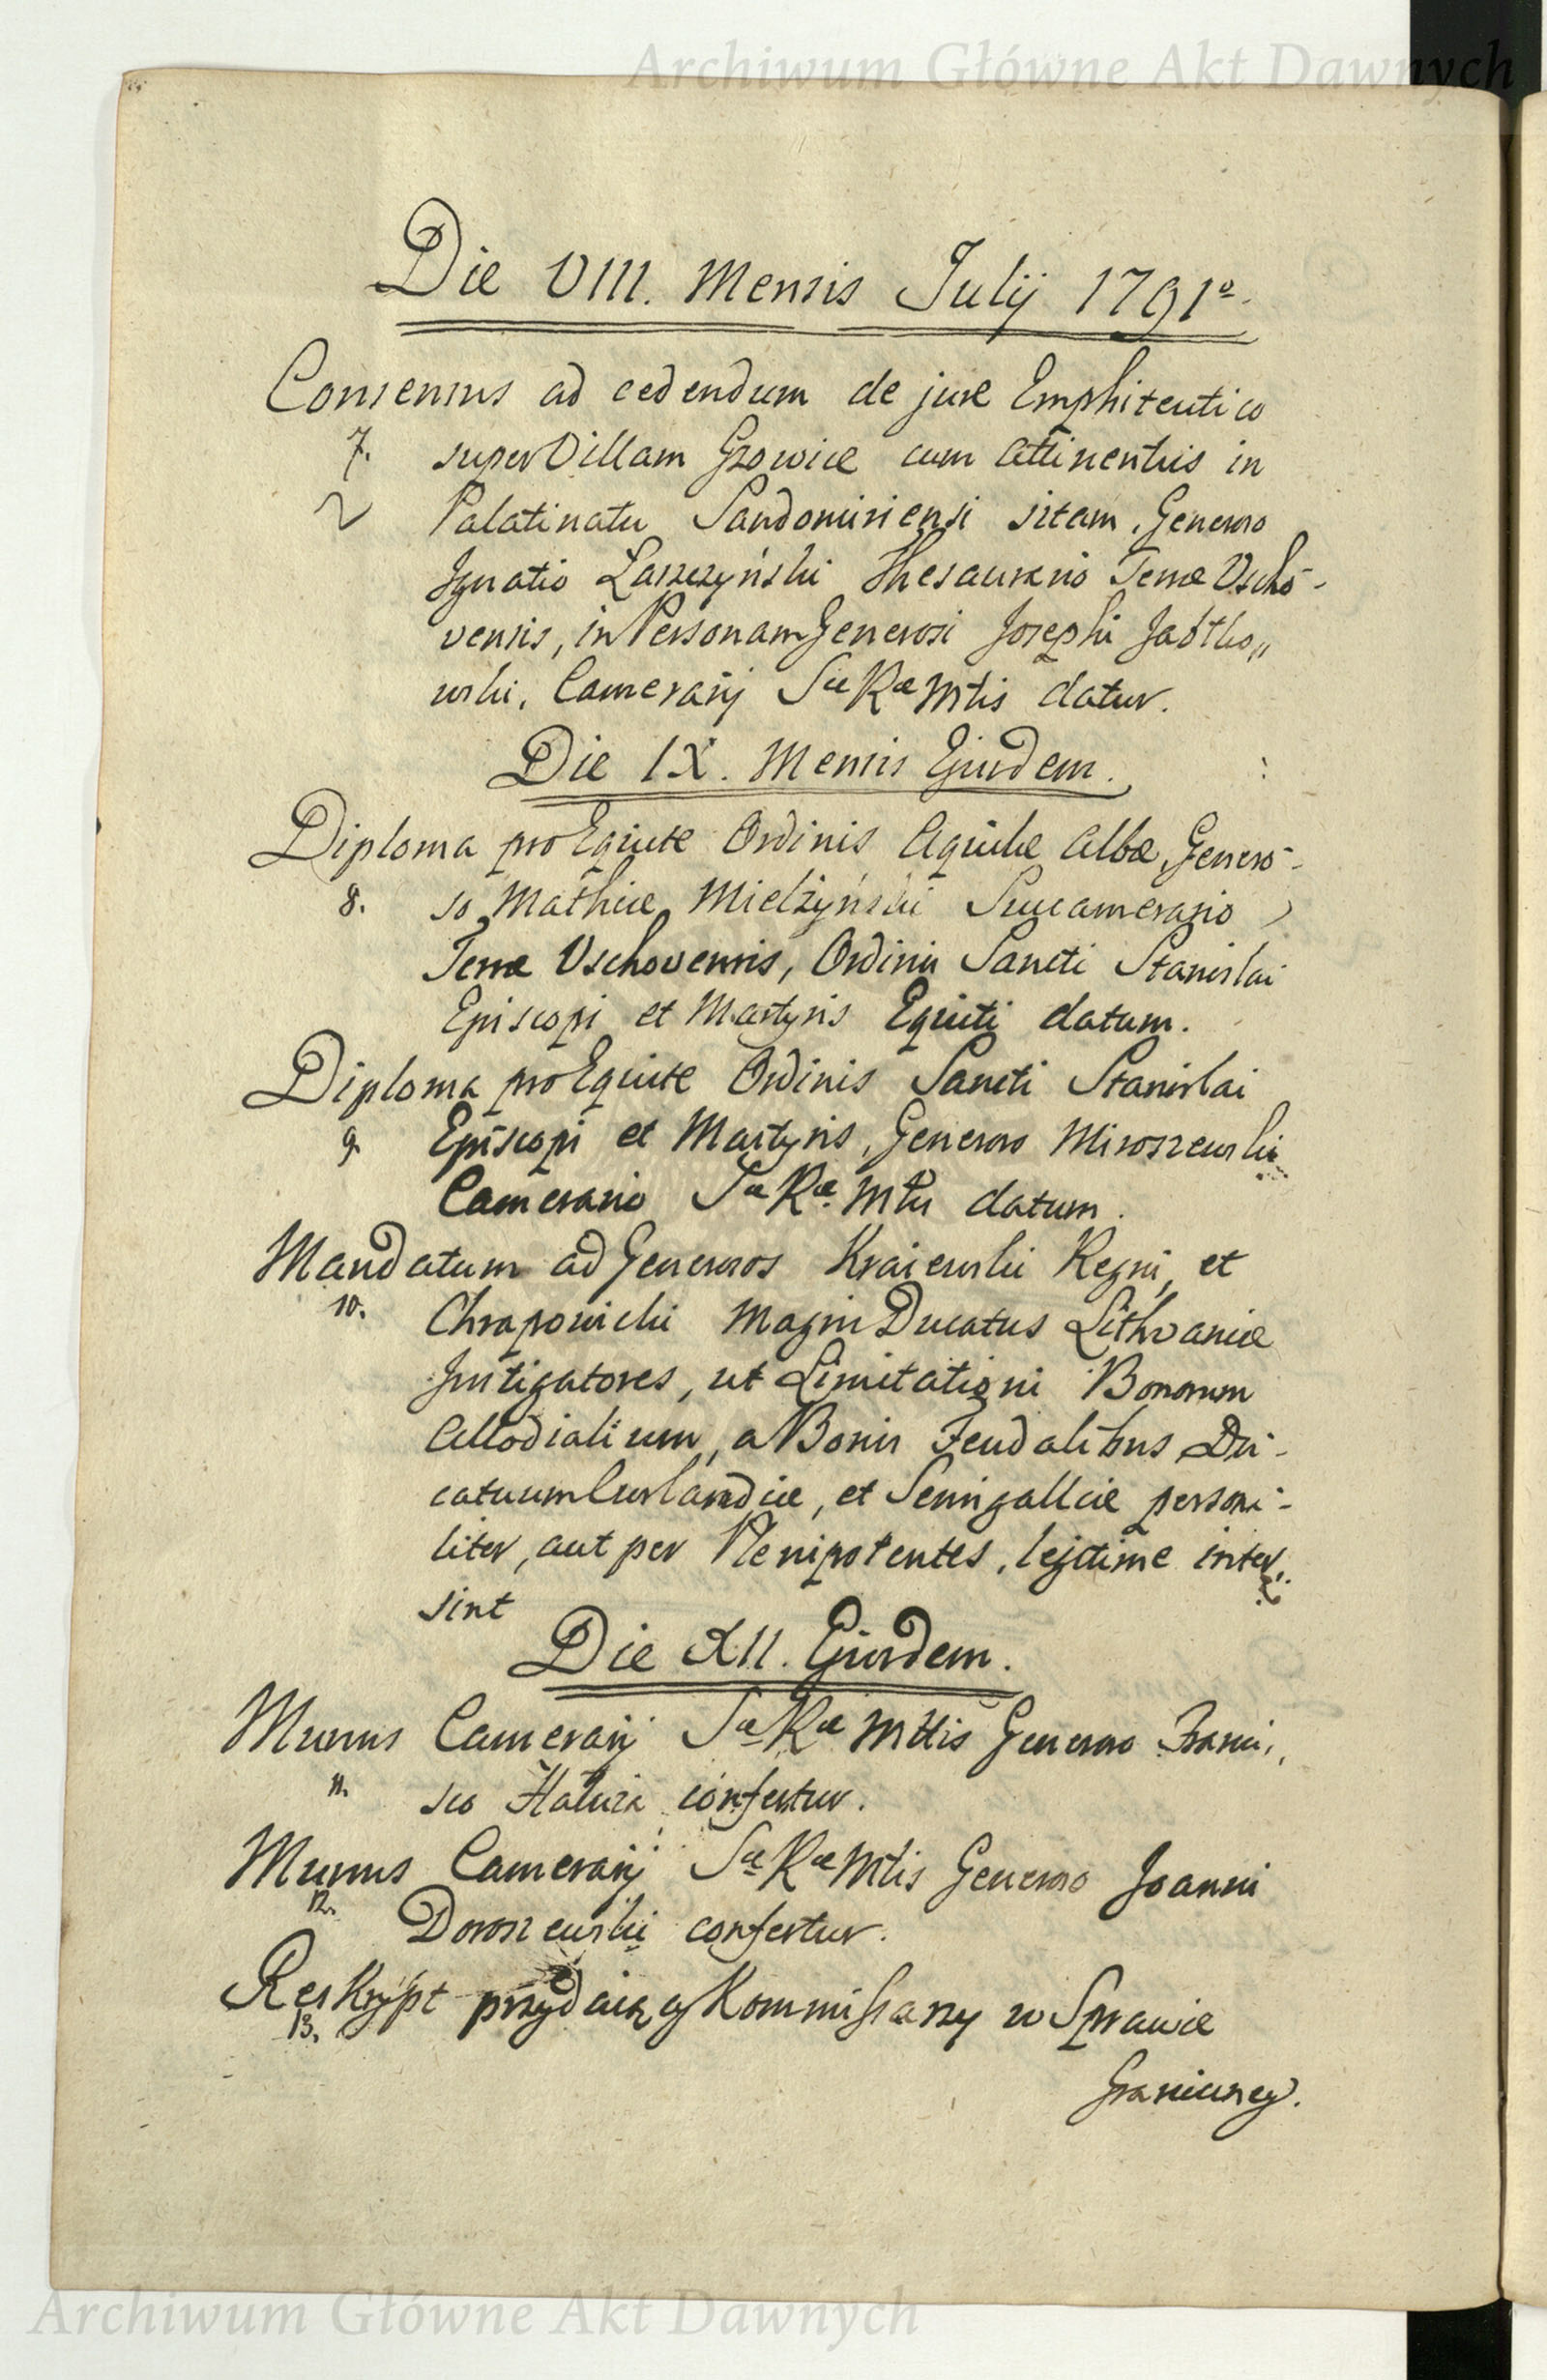 Archiwum Główne Akt Dawnych
Die VIII. Mensis Julij 1791º.
Consensus ad cedendum de jure Emphiteutico
7. super Villam Gzowice cum attinentiis in
Palatinatu Sandomiriensi sitam, Generoso
Ignatio Laszczyński Thesaurario Terræ Vscho-
vensis, in Personam Generosi Josephi Jabłko„
wski, Camerarij Sæ Ræ Mtis datur.
Die IX. Mensis Ejusdem.
Diploma pro Equite Ordinis Aquilæ Albæ, Genero-
8. so Mathiæ Mielżyński Succamerario
Terræ Vschovensis, Ordinis Sancti Stanislai
Episcopi et Martyris Equiti datum.
Diploma pro Equite Ordinis Sancti Stanislai
9. Episcopi et Martyris, Generoso Miroszewski
Camerario Sæ Ræ Mtis datum.
Mandatum ad Generosos Kraiewski Regni, et
10. Chrapowicki Magni Ducatus Lithvaniæ
Instigatores, ut Limitationi Bonorum
Allodialium, a Bonis Feudalibus Du-
catuum Curlandiæ, et Semigalliæ persona-
liter, aut per Plenipotentes, legitime inter„
sint
Die XII. Ejusdem.
Munus Camerarij Sæ Ræ Mttis Generoso Franci„
11. sco confertur.
Munus Camerarij Sæ Ræ Mtis Generoso Joanni
12. Doroszewski confertur.
Reskrypt przydaiący Kommissarzy w Sprawie
13.
Graniczney.
Archiwum Główne Akt Dawnych